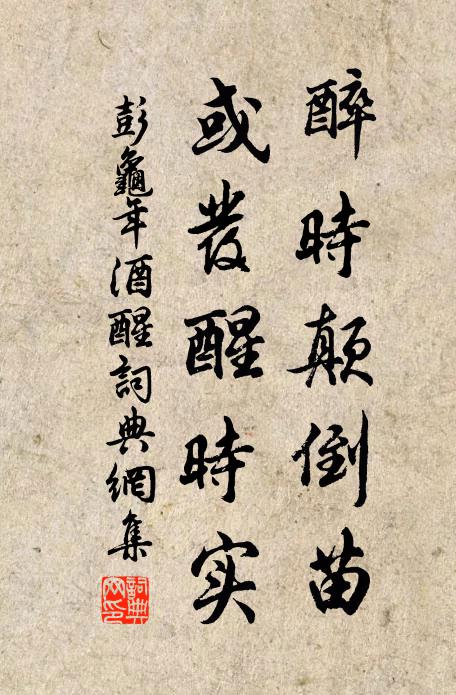 醉時顛倒苗
或發醒時实
彭龜年酒醒詞典網集
詞典网印